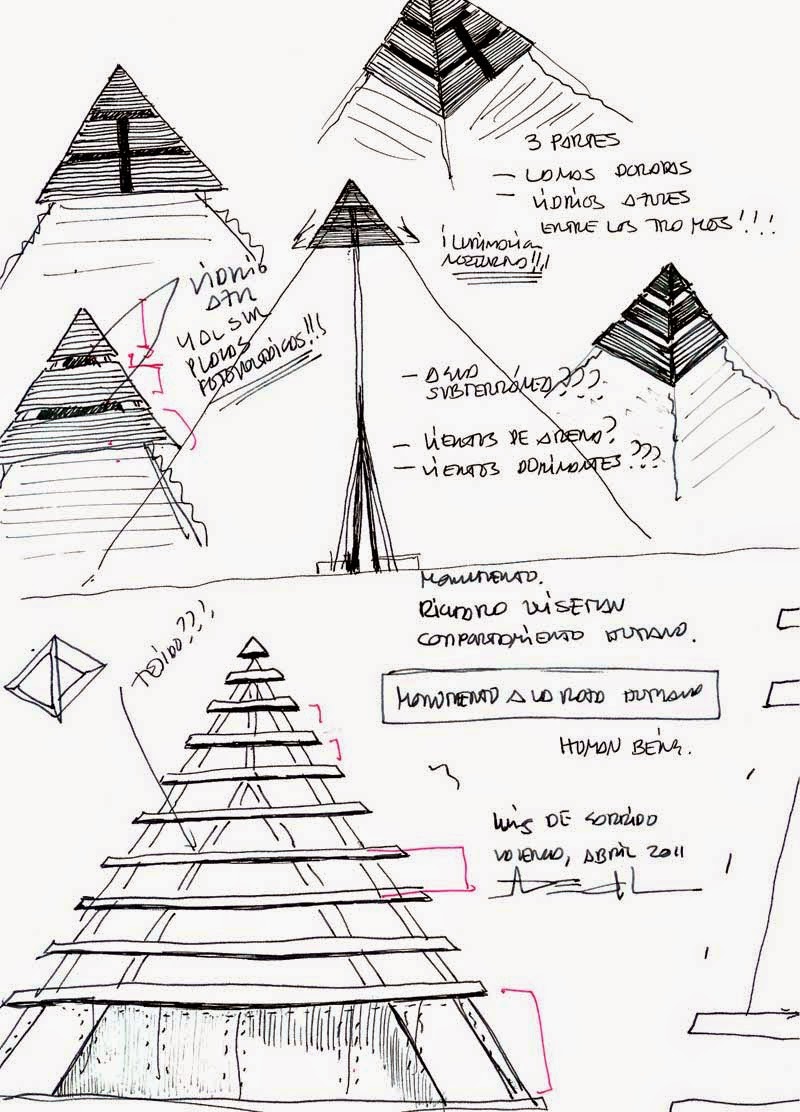 3 PARTES
— LAMAS DORADAS
— VIDRIOS AZULES
ENTRE LOS TRAMOS!!!
ILUMINACIÓN
NOCTURNA!!!
VIDRIO
AZUL
PLACAS
FOTOVOLTAICOS!!!
— AGUA
SUBTERRÁNEA???
— VIENTOS DE ARENA?
— VIENTOS DOMINANTES???
MONUMENTO.
RICARDO WISEMAN
COMPORTAMIENTO HUMANO.
TEJIDO???!
MONUMENTO A LA RAZA HUMANA
HUMAN BEING.
LUIS DE GARRIDO
VALENCIA, ABRIL 2011